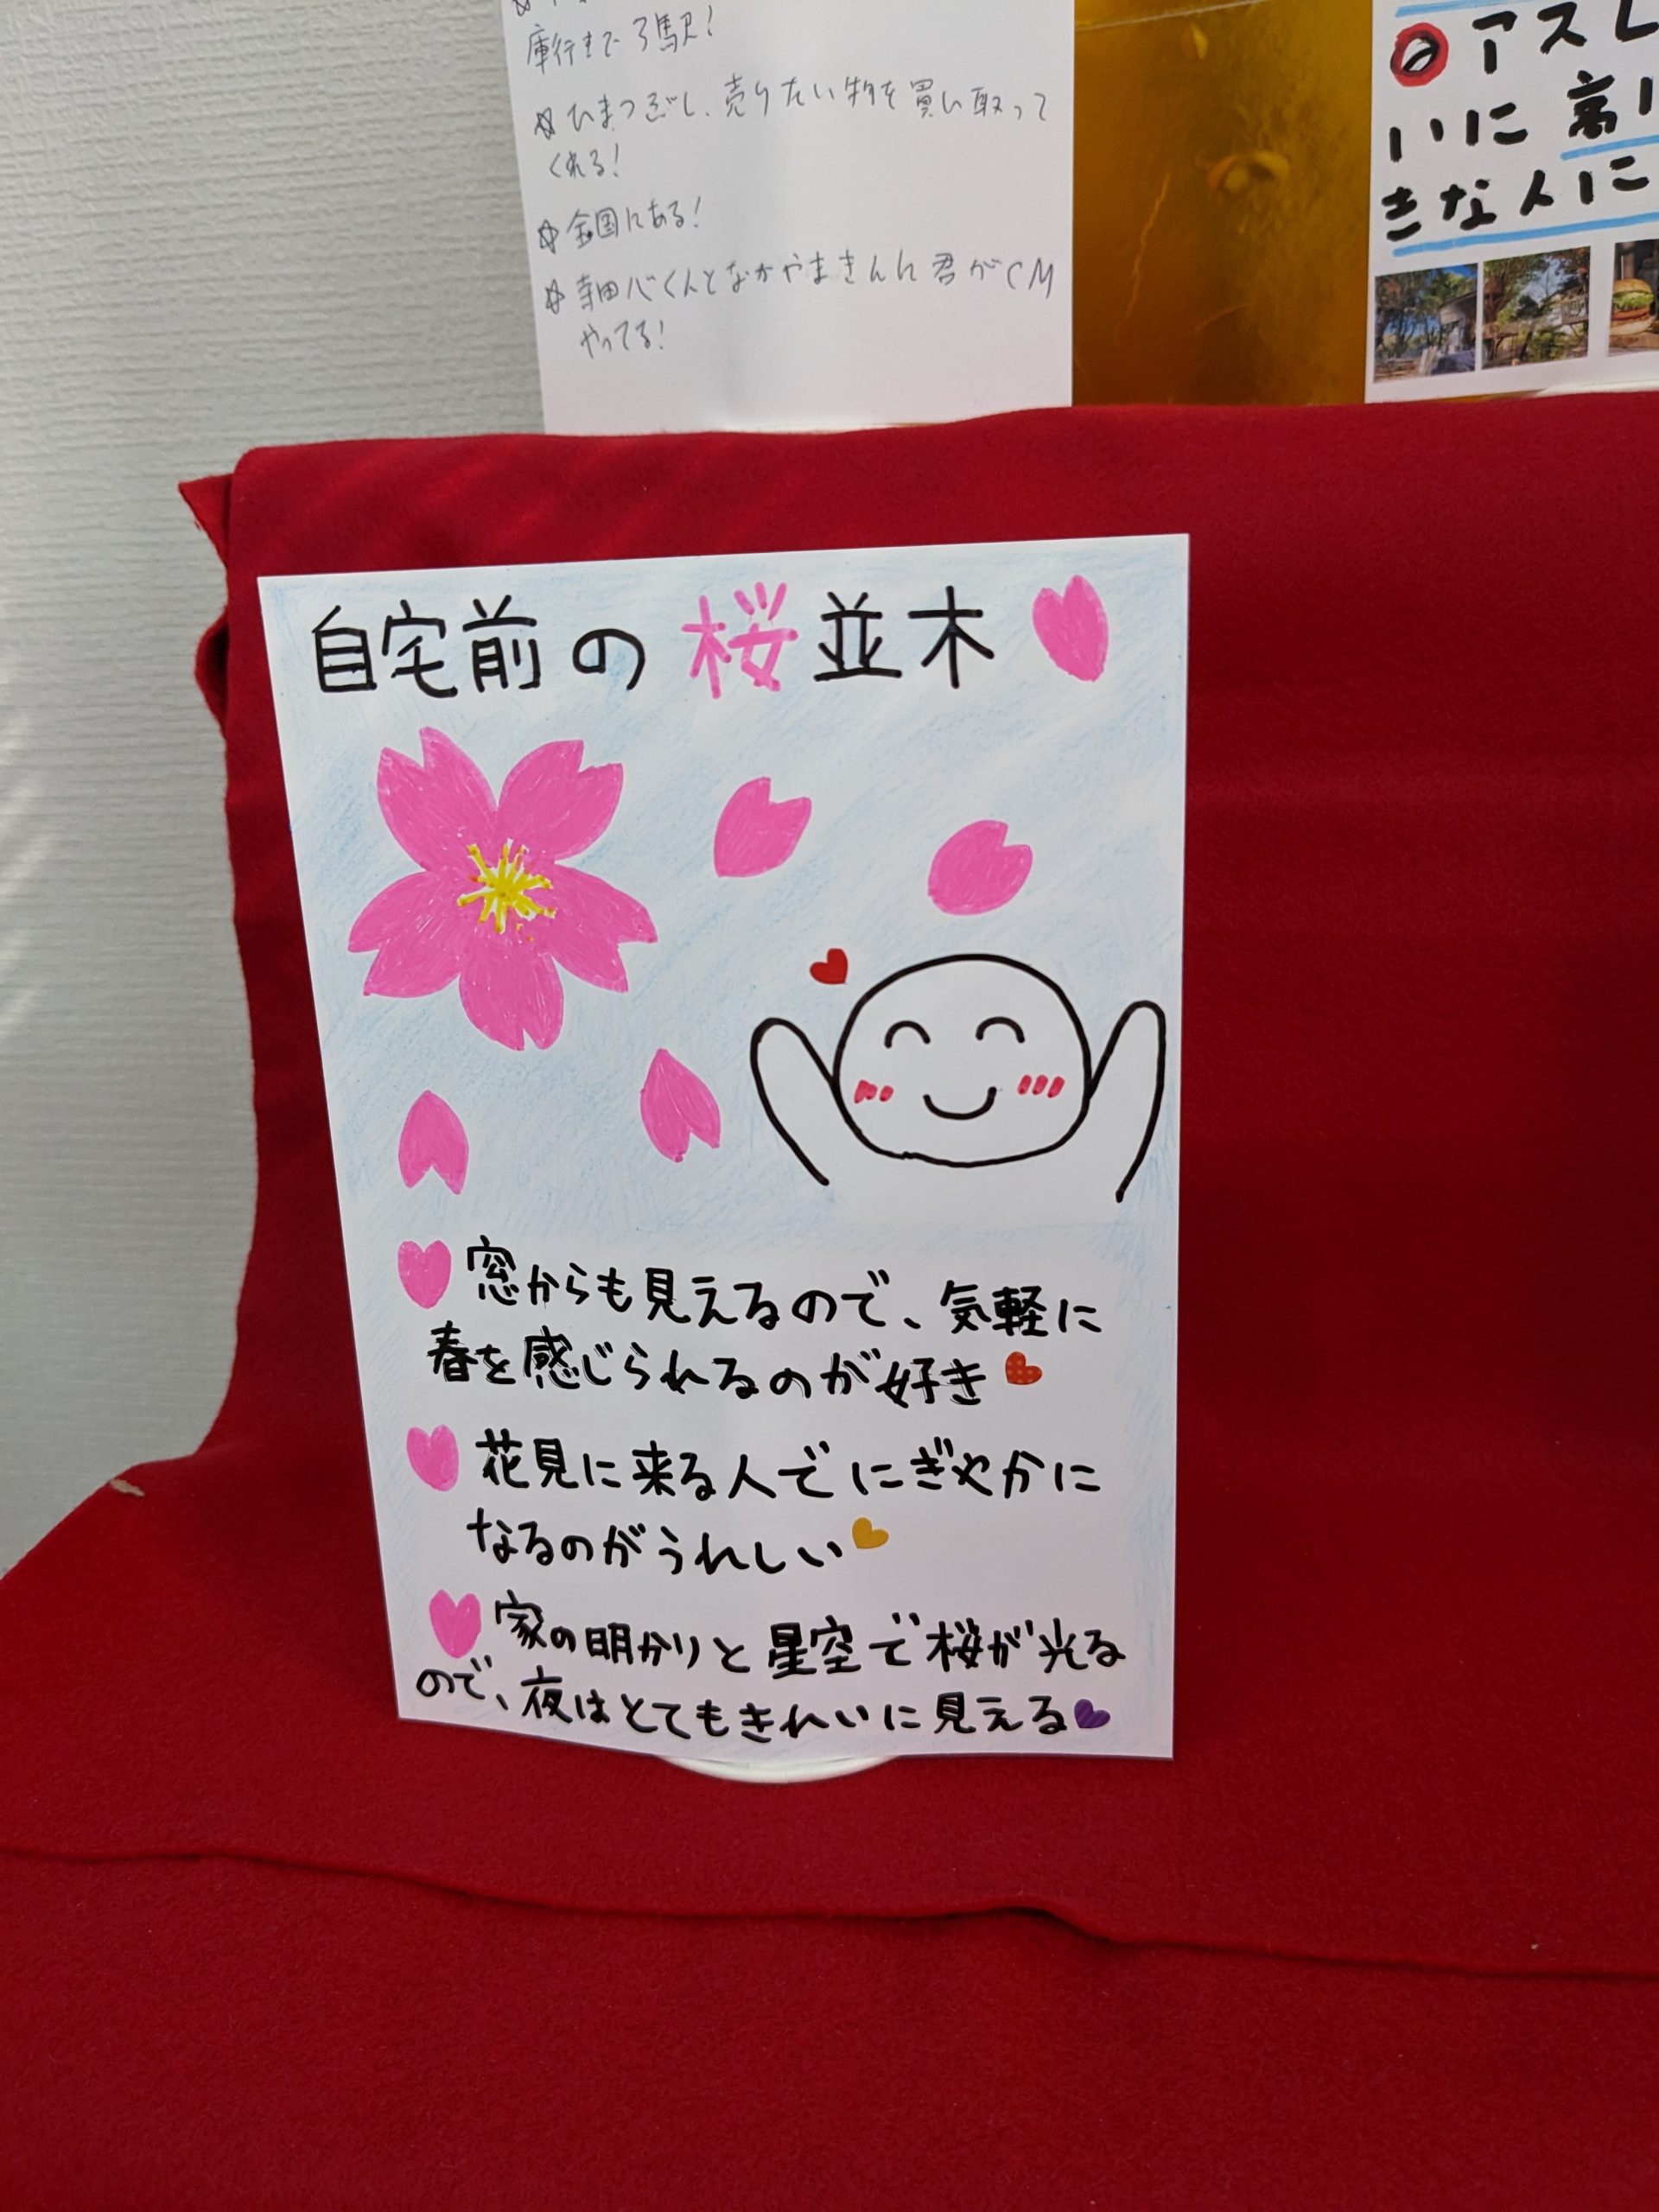 庫行まで3駅!
☆ひまつぶし、売りたい物を買い取って
くれる!
☆全国にある!
☆寺田心くんとなかやまきんに君がCM
やってる!
アスレ
いに高
きな人に
自宅前の桜並木
窓からも見えるので、気軽に
春を感じられるのが好き
花見に来る人でにぎやかに
なるのがうれしい
家の明かりと星空で桜が光る
ので、夜はとてもきれいに見える